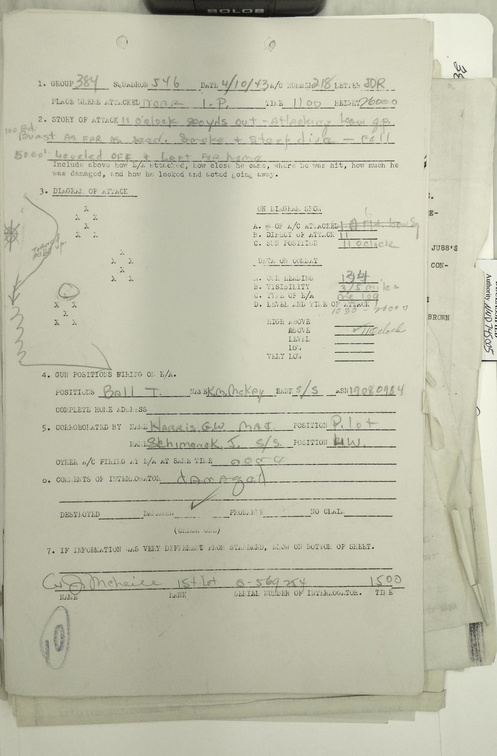 SOLOS
1. GROUP 384 SQUADRON 546 DATE 4/10/43 A/C NUMBER 218 LETTER JDR
PLACE WHERE ATTACKED near I.P. TIME 1100 HEIGHT 26000
2. STORY OF ATTACK 11 o'clock yds out - Attacking lead gp.
burst as far as Smoke & Steep dive - Fell
5000' leveled off & left for home
Include above how E/A attacked, how close he came, where he was hit, how much he
was damaged, and how he looked and acted going away.
3. DIAGRAM OF ATTACK
ON DIAGRAM SHOW
A. # OF A/C ATTACKED
B. DIRECT OF ATTACK 11
C. SUN POSITION 11 o'clock
DATA ON COMBAT
A. OUR HEADING 134
B. VISIBILITY 3/5 miles
C. TYPE OF E/A one 109
D. LEVEL AND TIME OF ATTACK
HIGH ABOVE
ABOVE
LEVEL
LOW
VERY LOW
4. GUN POSITIONS FIRING ON E/A.
POSITIONS Ball T. NAME K.M. McKay RANK S/S ASN 19080984
COMPLETE HOME ADDRESS
5. CORROBORATED BY NAME Harris, G.W. MAJ. POSITION Pilot
NAME Schimenek, J. S/S POSITION LLW.
OTHER A/C FIRING AT E/A AT SAME TIME
6. COMMENTS OF INTERROGATOR damaged
DESTROYED DAMAGED PROBABLE NO CLAIM
(CHECK ONE)
7. IF INFORMATION WAS VERY DIFFERENT FROM STANDARD, SHOW ON BOTTOM OF SHEET.
1st Lt O-569254 1500
NAME RANK SERIAL NUMBER OF INTERROGATOR. TIME
10
JU88'S
CON-
BROWN
Authority NND 745005